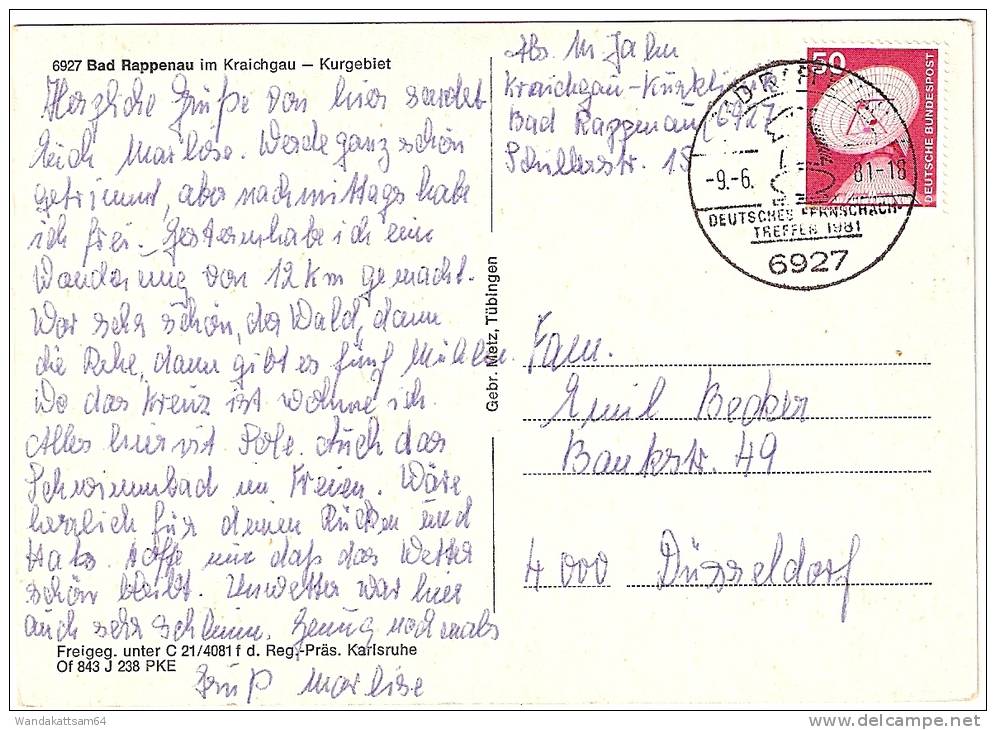 6927 Bad Rappenau im Kraichgau – Kurgebiet
Herzliche Grüße von hier sendet
Euch Marlise. Werde ganz schön
getrimmt, aber nachmittags habe
ich frei. Gestern habe ich eine
Wanderung von 12 km gemacht.
War sehr schön, der Wald, dann
die Ruhe, dann gibt es fünf Mühlen.
Wo das Kreuz ist wohne ich.
Alles hier ist Sole. Auch das
Schwimmbad im Freien. Wäre
herzlich für deinen Rücken und
Hals. Hoffe nur daß das Wetter
schön bleibt. Unwetter war hier
auch sehr schlimm. Genug nochmals
Gruß Marlise
Freigeg. unter C 21/4081 f d. Reg.-Präs. Karlsruhe
Of 843 J 238 PKE
Gebr. Metz, Tübingen
Abs. M. Jahn
Kraichgau-Kurklinik
Bad Rappenau 6927
Schillerstr. 15
50
DEUTSCHE BUNDESPOST
-9.-6. 81-18
DEUTSCHES FERNSCHACH-
TREFFEN 1981
6927
Fam.
Emil Becker
Bankstr. 49
4000 Düsseldorf
Wandakattsam64
delcampe.net